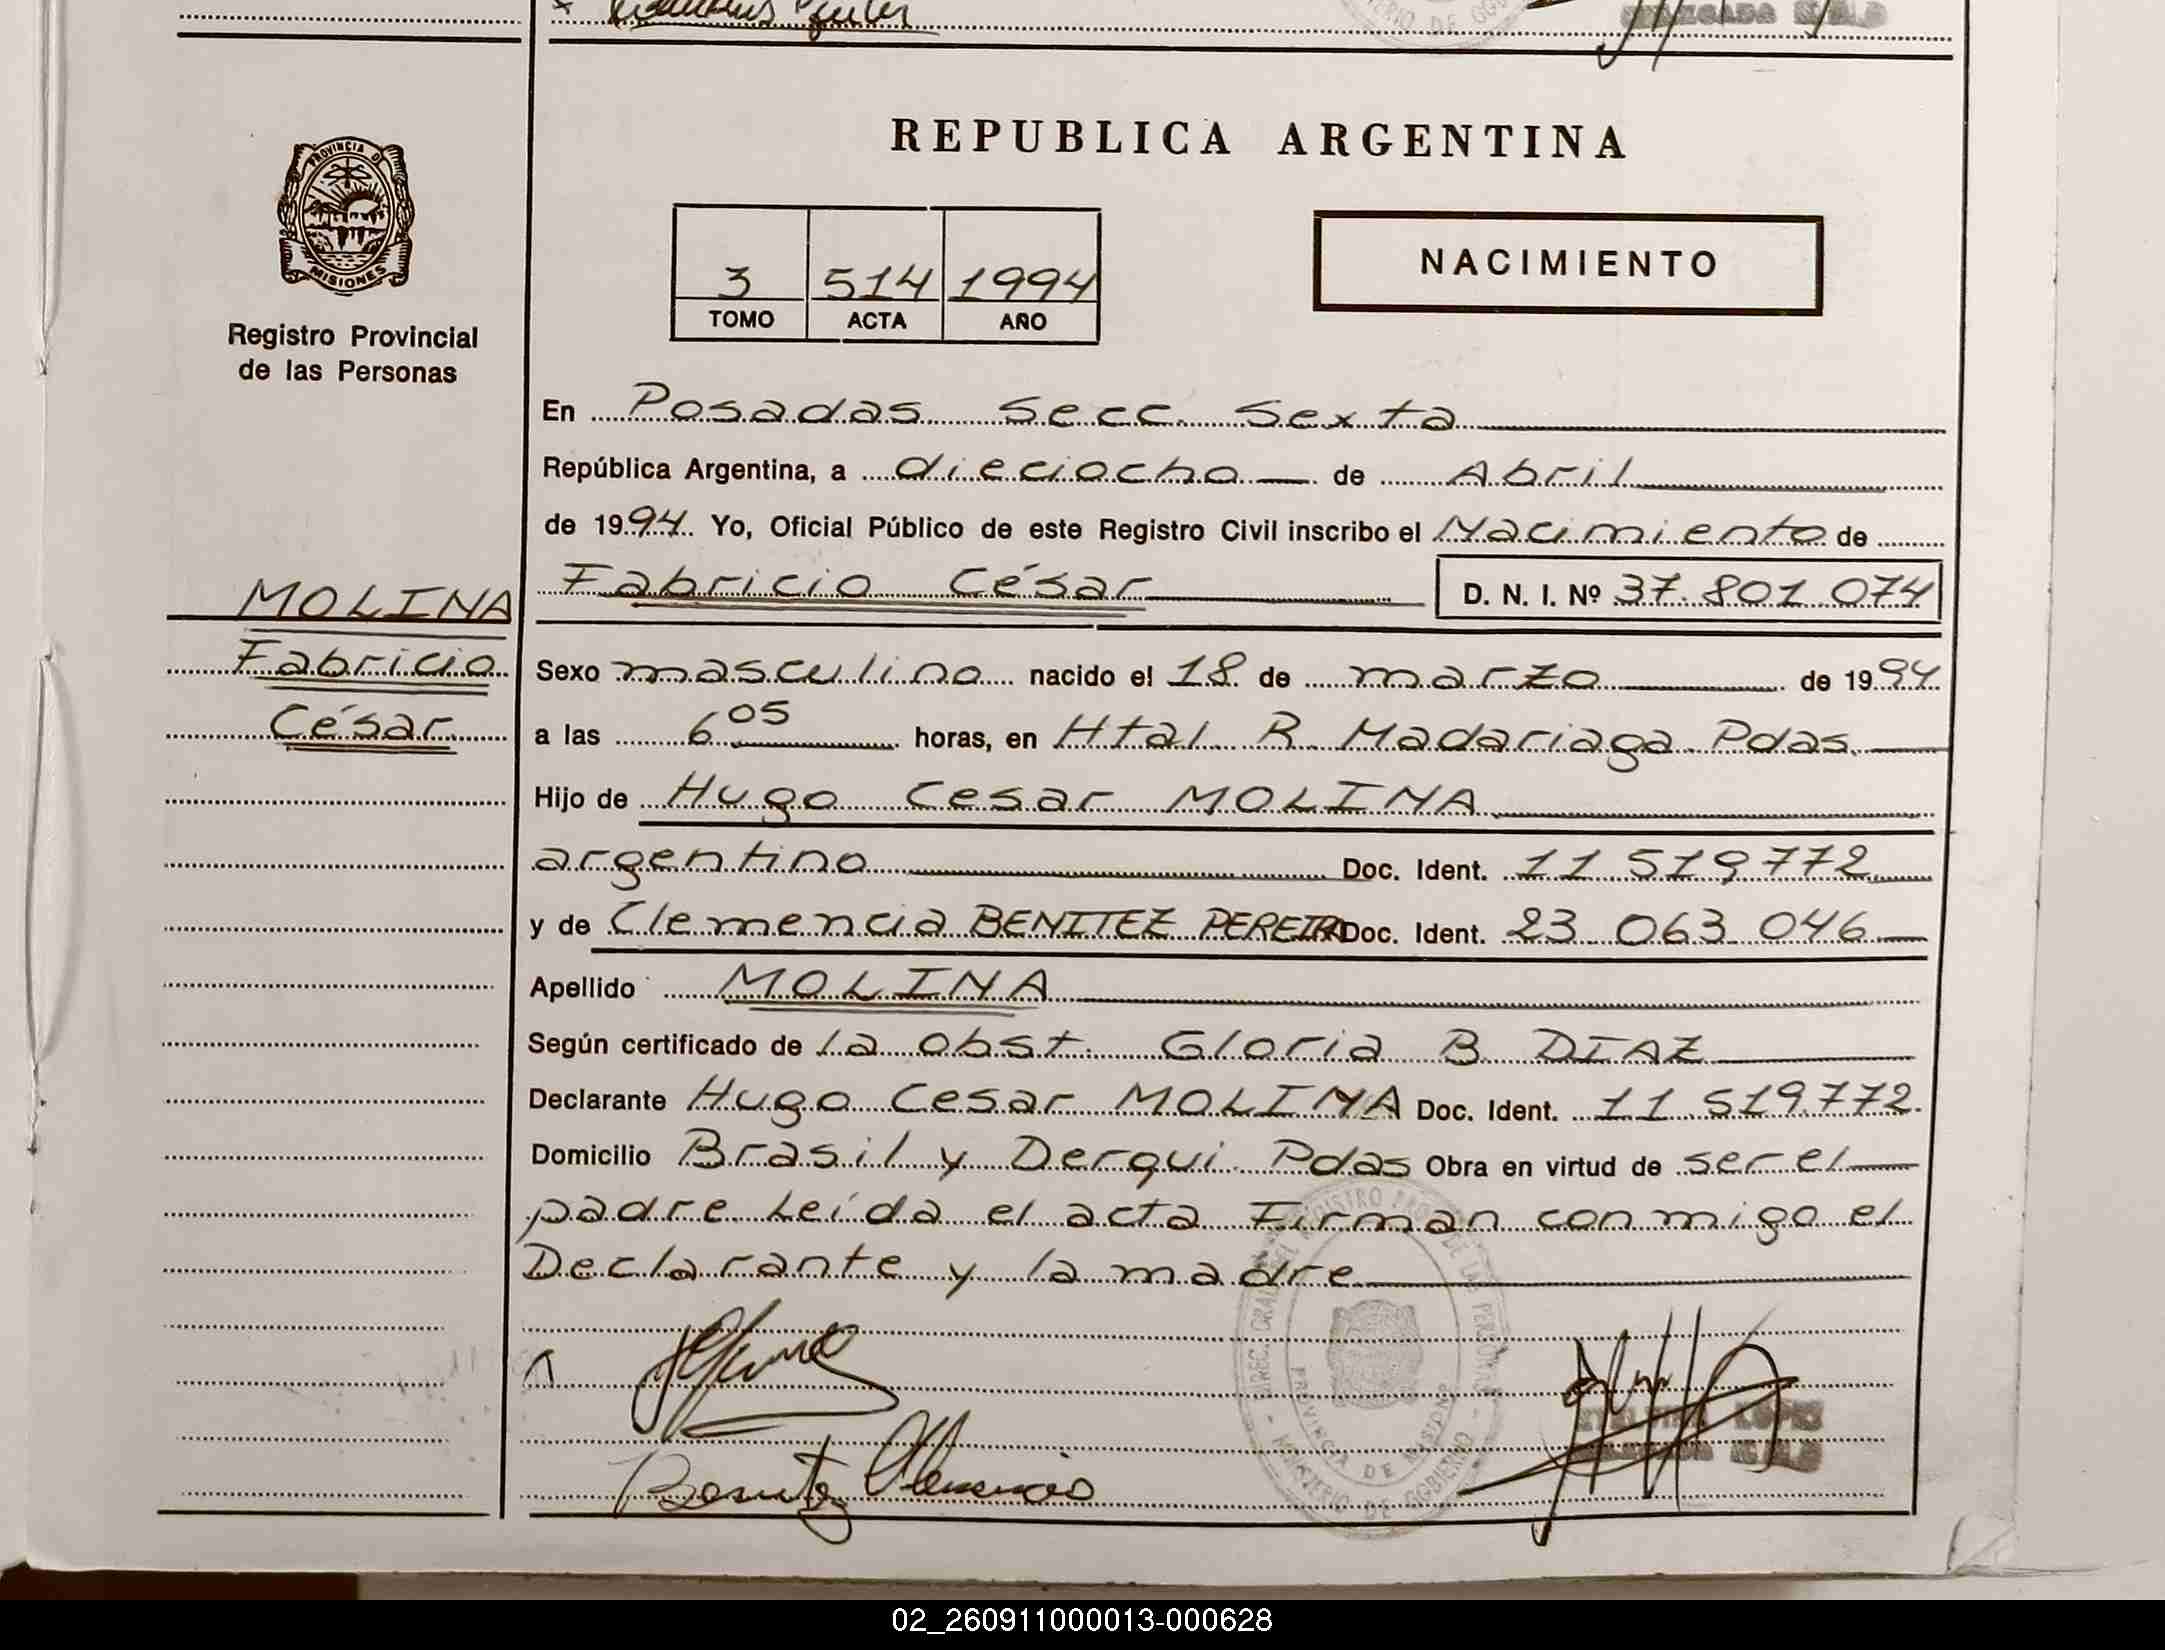 REPUBLICA ARGENTINA
PROVINCIA D
MISIONES
Registro Provincial
de las Personas
3 514 1994
TOMO ACTA AÑO
NACIMIENTO
En Posadas Secc. Sexta
República Argentina, a dieciocho de Abril
de 1994. Yo, Oficial Público de este Registro Civil inscribo el Nacimiento de
MOLINA
Fabricio
César
Fabricio César D. N. I. Nº 37.801.074
Sexo masculino nacido el 18 de marzo de 1994
a las 6 05 horas, en Htal R. Madariaga Pdas.
Hijo de Hugo Cesar MOLINA
argentino Doc. Ident. 11 519 772
y de Clemencia BENITEZ PEREIRA Doc. Ident. 23 063 046
Apellido MOLINA
Según certificado de la obst. Gloria B. DIAZ
Declarante Hugo Cesar MOLINA Doc. Ident. 11 519.772.
Domicilio Brasil y Derqui Pdas Obra en virtud de ser el
padre. Leída el acta Firman conmigo el
Declarante y la madre
Benitez Clemencia
PROVINCIA DE MISIONES
MINISTERIO DE GOBIERNO
02_260911000013-000628